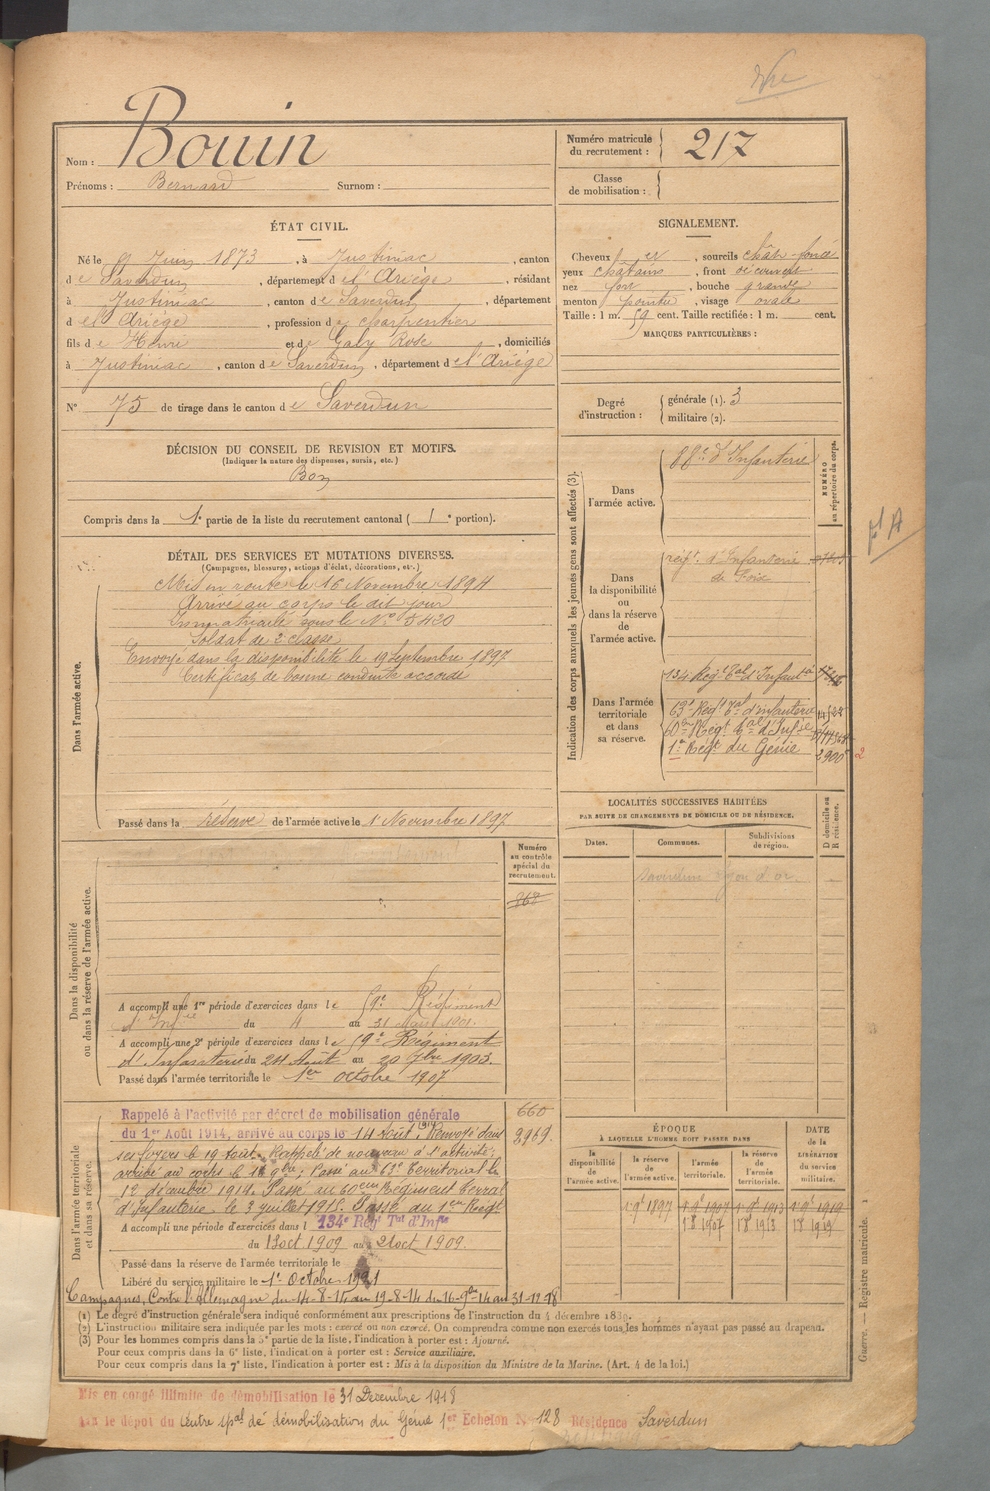 Nom : Bouin
Prénoms : Bernard Surnom :
Numéro matricule du recrutement : 217
Classe de mobilisation :
ÉTAT CIVIL.
Né le 9 Juin 1873, à Justiniac, canton
de Saverdun, département de l'Ariège, résidant
à Justiniac, canton de Saverdun, département
de l'Ariège, profession de charpentier
fils de Henri et de Gaby Rose, domiciliés
à Justiniac, canton de Saverdun, département de l'Ariège
N° 75 de tirage dans le canton de Saverdun
SIGNALEMENT.
Cheveux et, sourcils châts foncé
yeux châtains, front découvert
nez fort, bouche grande
menton pointu, visage ovale
Taille : 1 m. 59 cent. Taille rectifiée : 1 m. cent.
MARQUES PARTICULIÈRES :
Degré d'instruction : générale (1). 3
militaire (2).
DÉCISION DU CONSEIL DE REVISION ET MOTIFS.
(Indiquer la nature des dispenses, sursis, etc.)
Bon
Compris dans la 1e partie de la liste du recrutement cantonal ( 1e portion).
DÉTAIL DES SERVICES ET MUTATIONS DIVERSES.
(Campagnes, blessures, actions d'éclat, décorations, etc.)
Dans l'armée active.
Mis en route le 16 Novembre 1894
Arrivé au corps le dit jour
Immatriculé sous le N° 5420
Soldat de 2e classe
Envoyé dans la disponibilité le 19 Septembre 1897
Certificat de bonne conduite accordé
Passé dans la réserve de l'armée active le 1 Novembre 1897
Indication des corps auxquels les jeunes gens sont affectés (3).
NUMÉRO au répertoire du corps.
Dans l'armée active.
88e d'Infanterie
Dans la disponibilité ou dans la réserve de l'armée active.
régt. d'Infanterie
de Foix
Dans l'armée territoriale et dans sa réserve.
134 Régt Tal d'Infant
63e Régt Tal d'Infanterie
60e Régt Tal d'Infie
1er Régt du Génie 2900
LOCALITÉS SUCCESSIVES HABITÉES
PAR SUITE DE CHANGEMENTS DE DOMICILE OU DE RÉSIDENCE.
Dates. Communes. Subdivisions de région. D domicile ou R résidence.
Dans la disponibilité ou dans la réserve de l'armée active.
Numéro au contrôle spécial du recrutement.
868
A accompli une 1re période d'exercices dans le 59e Régiment
d'Infie du 4 au 31 Mars 1901.
A accompli une 2e période d'exercices dans le 59e Régiment
d'Infanterie du 24 Août au 20 7bre 1903.
Passé dans l'armée territoriale le 1er octobre 1907
Dans l'armée territoriale et dans sa réserve.
660
2969.
Rappelé à l'activité par décret de mobilisation générale
du 1er Août 1914, arrivé au corps le 14 Août 1914. Renvoyé dans
ses foyers le 19 août. Rappelé de nouveau à l'activité;
arrivé au corps le 16 9bre; Passé au 63e Territorial le
12 décembre 1914. Passé au 60eme Régiment Terral
d'Infanterie le 3 juillet 1915. Passé au 1er Régt
A accompli une période d'exercices dans l 134e Régt Tal d'Infie
du 13 oct. 1909 au 21 oct 1909.
Passé dans la réserve de l'armée territoriale le
Libéré du service militaire le 1er Octobre 1921
Campagnes, Contre l'Allemagne du 14-8-14 au 19-8-14 du 16-9bre-14 au 31-12-18
ÉPOQUE
À LAQUELLE L'HOMME DOIT PASSER DANS
la disponibilité de l'armée active. la réserve de l'armée active. l'armée territoriale. la réserve de l'armée territoriale.
DATE de la LIBÉRATION du service militaire.
1 9bre 1897 1 9bre 1907 1 9bre 1913 1 9bre 1919
1 8bre 1907 1 8bre 1913 1 8bre 1919
(1) Le degré d'instruction générale sera indiqué conformément aux prescriptions de l'instruction du 4 décembre 1889.
(2) L'instruction militaire sera indiquée par les mots : exercé ou non exercé. On comprendra comme non exercés tous les hommes n'ayant pas passé au drapeau.
(3) Pour les hommes compris dans la 5e partie de la liste, l'indication à porter est : Ajourné.
Pour ceux compris dans la 6e liste, l'indication à porter est : Service auxiliaire.
Pour ceux compris dans la 7e liste, l'indication à porter est : Mis à la disposition du Ministre de la Marine. (Art. 4 de la loi.)
Guerre. — Registre matricule.
Mis en congé illimité de démobilisation le 31 Décembre 1918
Par le dépôt du Centre ipal de démobilisation du Génie 1er Echelon N° 128 Résidence Saverdun